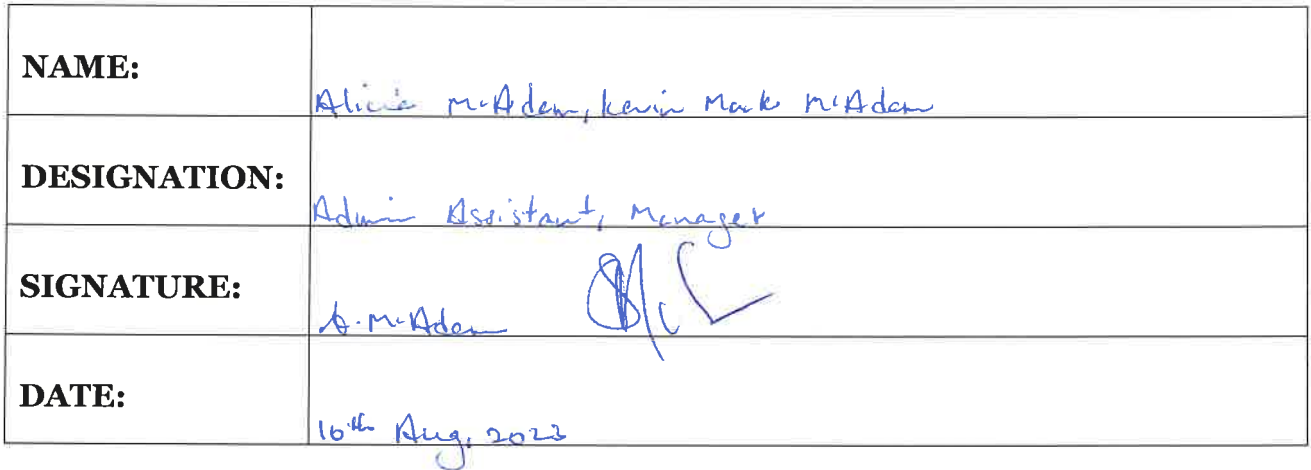 NAME:
Alicia McAdam, Kevin Mark McAdam
DESIGNATION:
Admin Assistant, Manager
SIGNATURE:
A. McAdam
DATE:
16th Aug, 2023